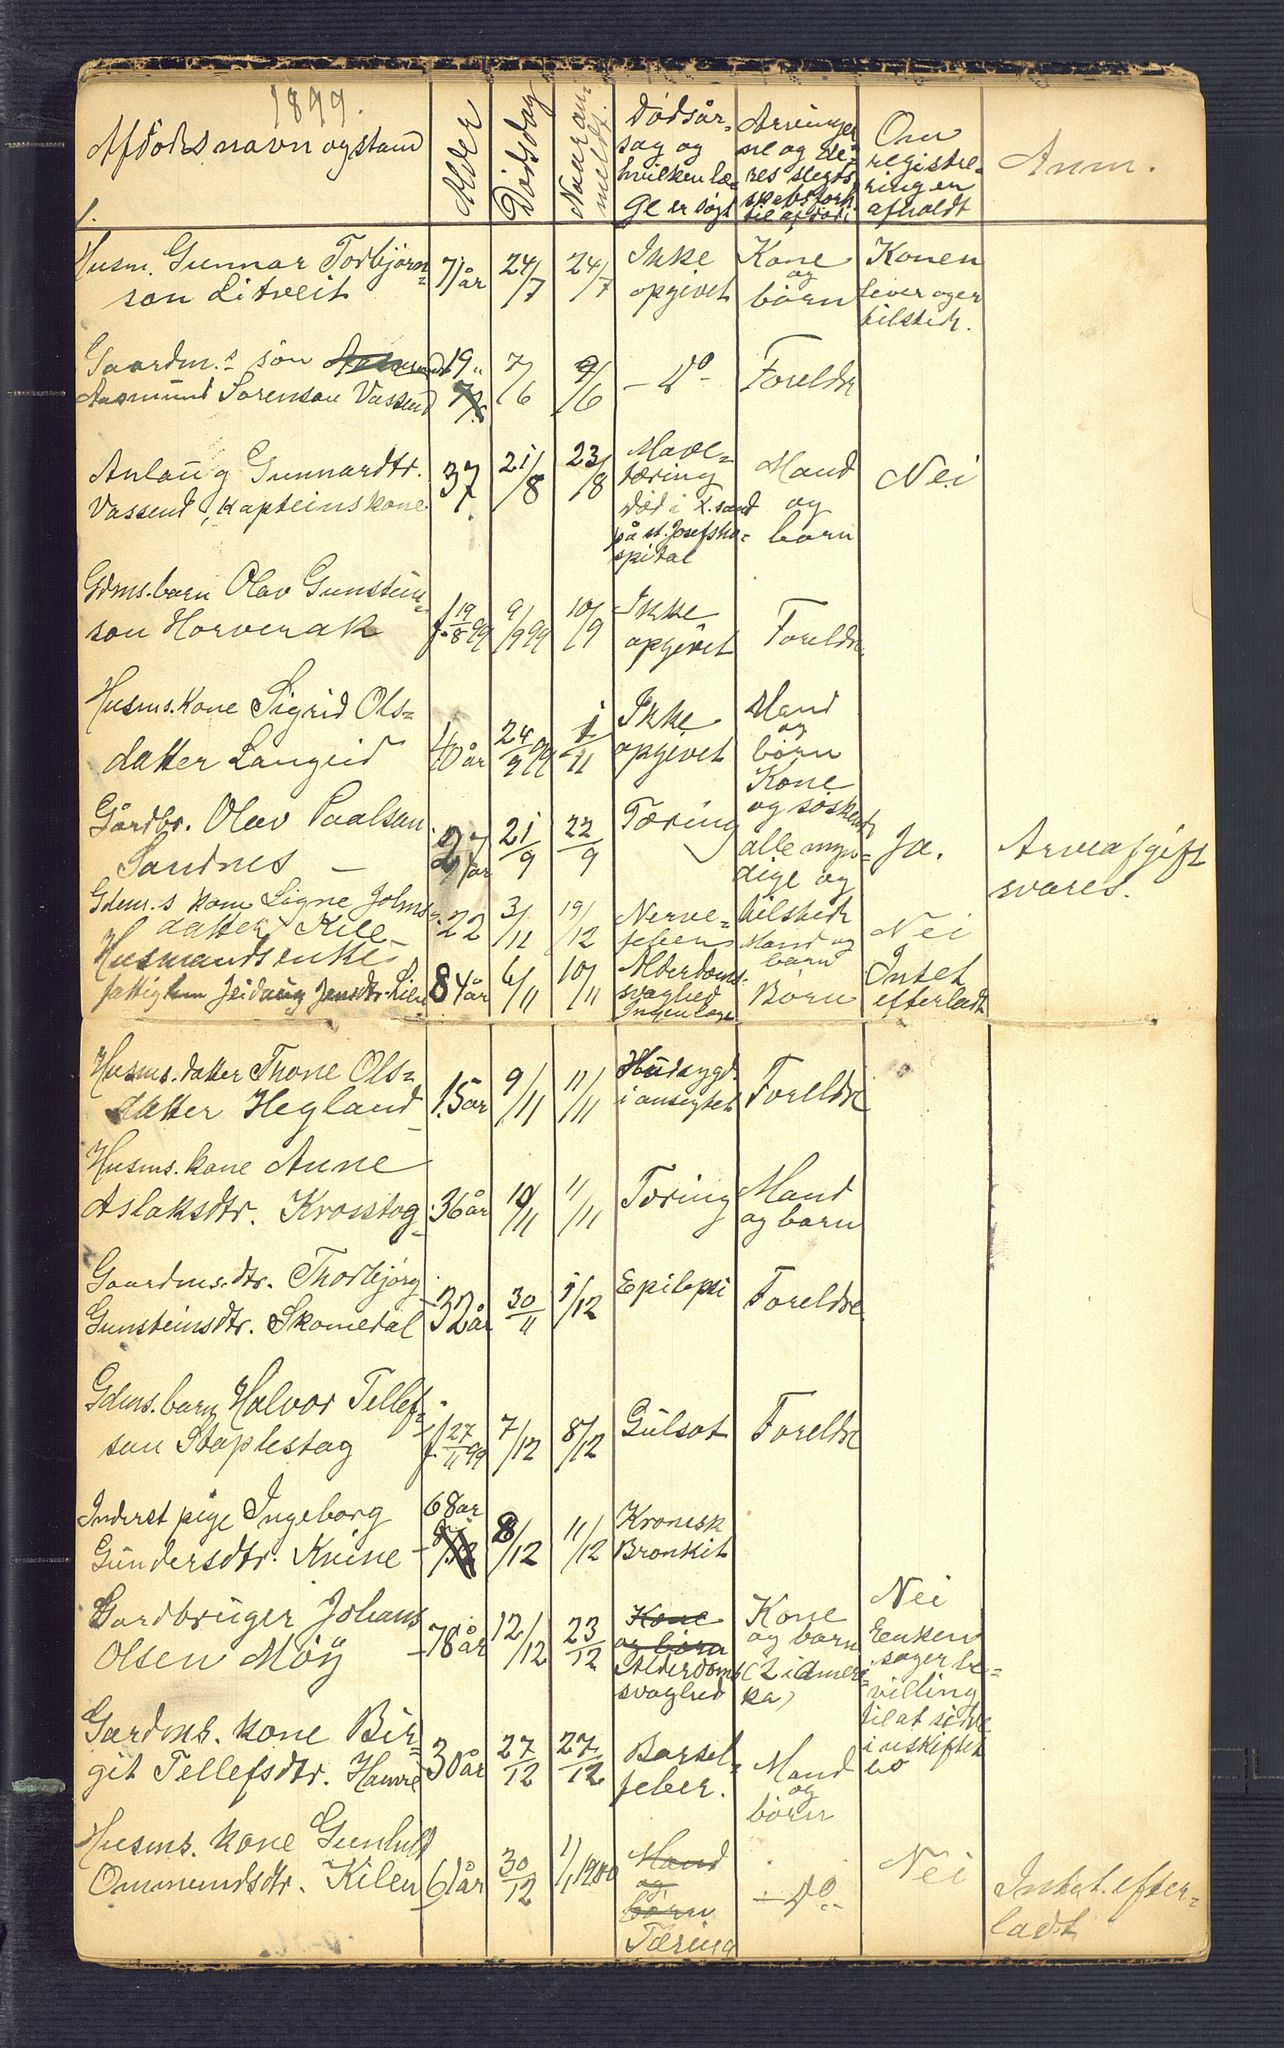 1899.
Afdødes navn og stand
Alder
Dødsdag
Naar anmeldt.
Dødsår-
sag og
hvilken læ-
ge er søgt
Arvinger
ne og de-
res slegts
skabsforh.
til afdøde
Om
registre-
ring er
afholdt
Anm.
1.
Husm. Gunnar Torbjørn-
son Litveit
71 år
24/7
24/7
Ikke
opgivet
Kone
og
børn
Konen
lever og er
tilstede.
Gaardm.s søn
Aasmund Sørenson Vassend
19 "
7/6
9/6
- Do -
Foreldre
Anlaug Gunnardtr.
Vassend, Kapteinskone
37
21/8
23/8
Mave-
tæring
død i K.sand
på st. Josefsho-
spital
Mand
og
børn
Nei
Gdms. barn Olav Gunstein-
son Horverak
f. 19/8 99
9/9 99
10/9
Ikke
opgivet
Foreldre
Husms. kone Sigrid Ols-
datter Langeid
40 år
24/9 99
1/11
Ikke
opgivet
Mand
og
børn
Gårdbr. Olav Paalson
Sandnes —
27 år
21/9
22/9
Tæring
Kone
og søskende
alle myn-
dige og
tilstede
Ja.
Arveafgift
svares.
Gdm.s kone Signe Johns-
datter Kile
22
3/11
19/12
Nerve-
feber
Mand og
børn
Nei
Husmandsenke
fattiglem Jeidaug Jensdtr. Kile
84 år
6/11
10/11
Alderdoms-
svaghed
Ingen læge
Børn
Intet
efterladt
Husms. datter Thone Ols-
datter Hegland
15 år
9/11
11/11
Hudsygd.
i ansigtet
Foreldre
Husms. kone Anne
Aslaksdtr. Krosstog
36 år
10/11
11/11
Tæring
Mand
og barn
Gaardms. dtr. Thorbjørg
Gunsteinsdtr. Skomedal
32 år
30/11
1/12
Epilepsi
Foreldre
Gdms. barn Halvor Tellef-
son Staplestog
f. 27/11 99
7/12
8/12
Gulsot
Foreldre
Inderst pige Ingeborg
Gundersdtr. Kneine
68 år
8/12
11/12
Kronisk
Bronkit
Gardbruger Johans
Olsen Möÿ
78 år
12/12
23/12
Kone
og børn
Alderdoms
svaghed
Kone
og børn
(2 i Ameri-
ka)
Nei
Enken
søger be-
villing
til at sidde
i uskiftet
bo
Gardms. kone Bir-
git Tellefsdtr. Hamre
30 år
27/12
27/12
Barsel-
feber.
Mand
og
børn
Husms. kone Gunhild
Ommundsdtr. Kilen
61 år
30/12
1/1 1900
Mand
og
børn
Tæring
- Do -
Nei
Intet efter-
ladt